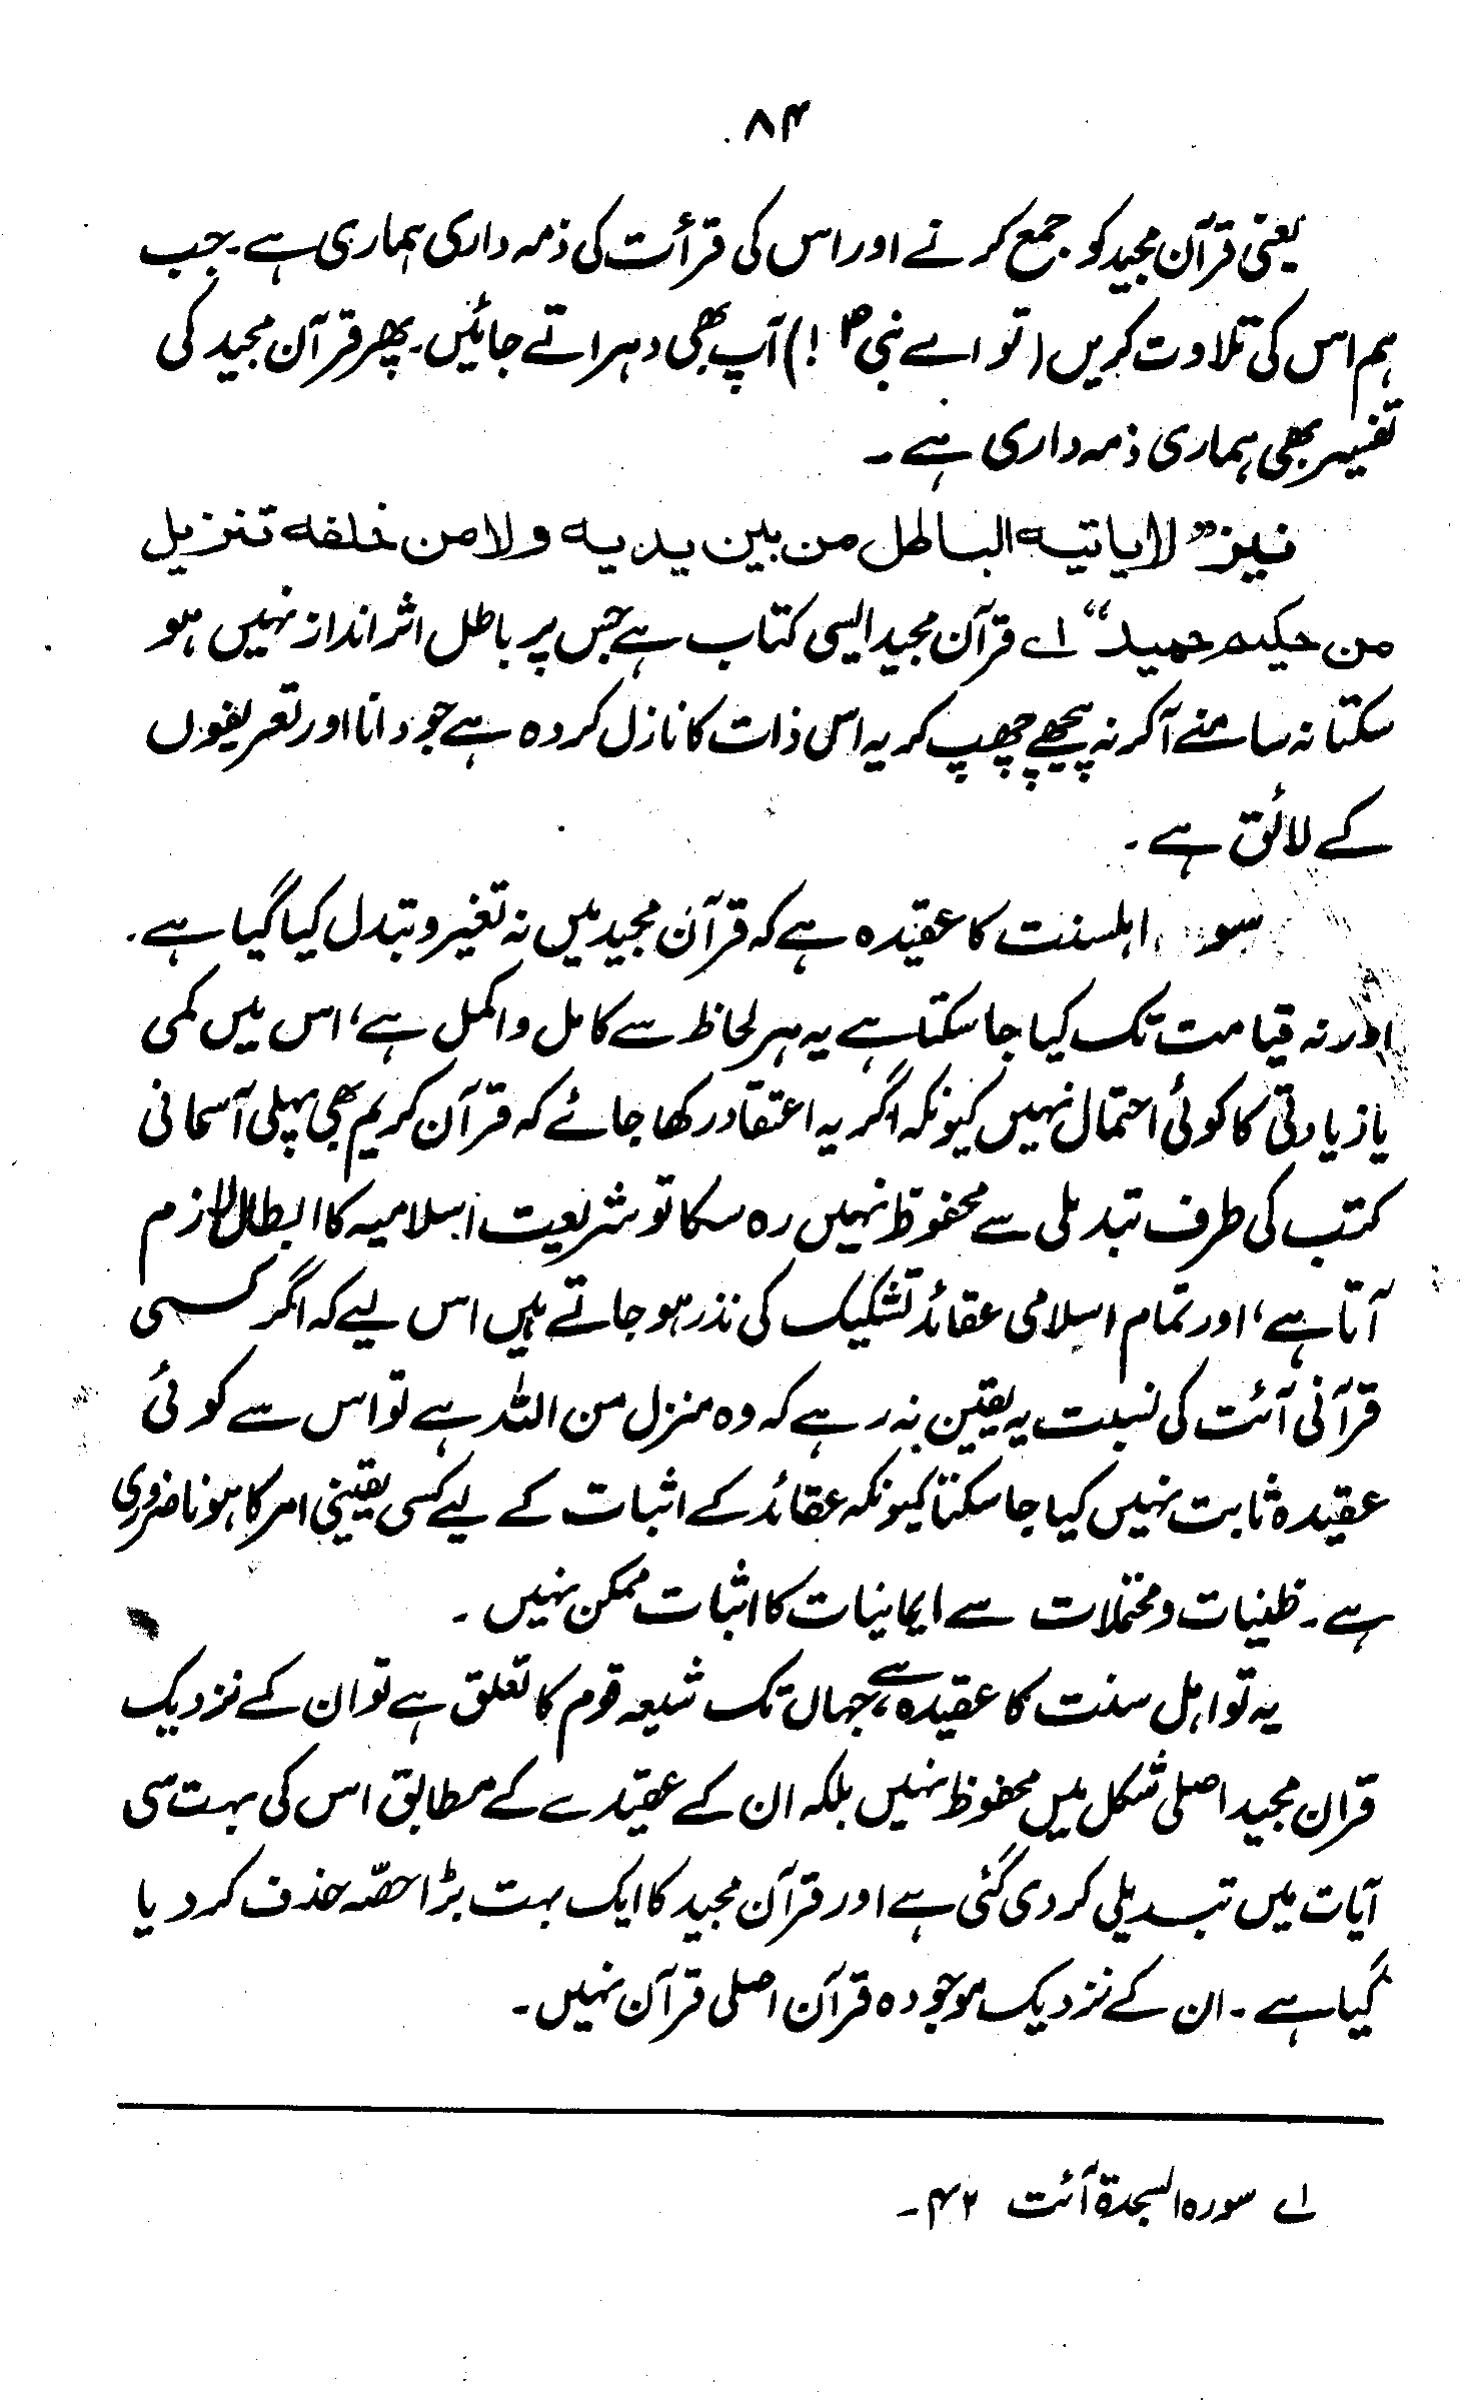 ۸۴
یعنی قرآن مجید کو جمع کرنے اور اس کی قرأت کی ذمہ داری ہماری ہے۔ جب
ہم اس کی تلاوت کریں (تو اے نبی ؐ !) آپ بھی دہراتے جائیں۔ پھر قرآن مجید کی
تفسیر بھی ہماری ذمہ داری ہے ۔
نیز ”لا یاتیہ الباطل من بین یدیہ ولا من خلفہ تنزیل
من حکیم حمید“ ۱ے قرآن مجید ایسی کتاب ہے جس پر باطل اثر انداز نہیں ہو
سکتا نہ سامنے آکر نہ پیچھے چھپ کر یہ اس ذات کا نازل کردہ ہے جو دانا اور تعریفوں
کے لائق ہے ۔
سو اہلسنت کا عقیدہ ہے کہ قرآن مجید میں نہ تغیر و تبدل کیا گیا ہے ۔
اور نہ قیامت تک کیا جا سکتا ہے یہ ہر لحاظ سے کامل و اکمل ہے، اس میں کمی
یا زیادتی کا کوئی احتمال نہیں کیونکہ اگر یہ اعتقاد رکھا جائے کہ قرآن کریم بھی پہلی آسمانی
کتب کی طرف تبدیلی سے محفوظ نہیں رہ سکا تو شریعت اسلامیہ کا ابطال لازم
آتا ہے، اور تمام اسلامی عقائد تشکیک کی نذر ہو جاتے ہیں اس لیے کہ اگر کسی
قرآنی آئت کی نسبت یہ یقین نہ رہے کہ وہ منزل من اللہ ہے تو اس سے کوئی
عقیدہ ثابت نہیں کیا جا سکتا کیونکہ عقائد کے اثبات کے لیے کسی یقینی امر کا ہونا ضروری
ہے ۔ ظنیات و محتملات سے ایمانیات کا اثبات ممکن نہیں ۔
یہ تو اہل سنت کا عقیدہ ہے، جہاں تک شیعہ قوم کا تعلق ہے تو ان کے نزدیک
قران مجید اصلی شکل میں محفوظ نہیں بلکہ ان کے عقیدے کے مطابق اس کی بہت سی
آیات میں تبدیلی کر دی گئی ہے اور قرآن مجید کا ایک بہت بڑا حصّہ حذف کر دیا
گیا ہے ۔ ان کے نزدیک موجودہ قرآن اصلی قرآن نہیں ۔
۱ے سورہ السجدة آئت ۴۲ ۔